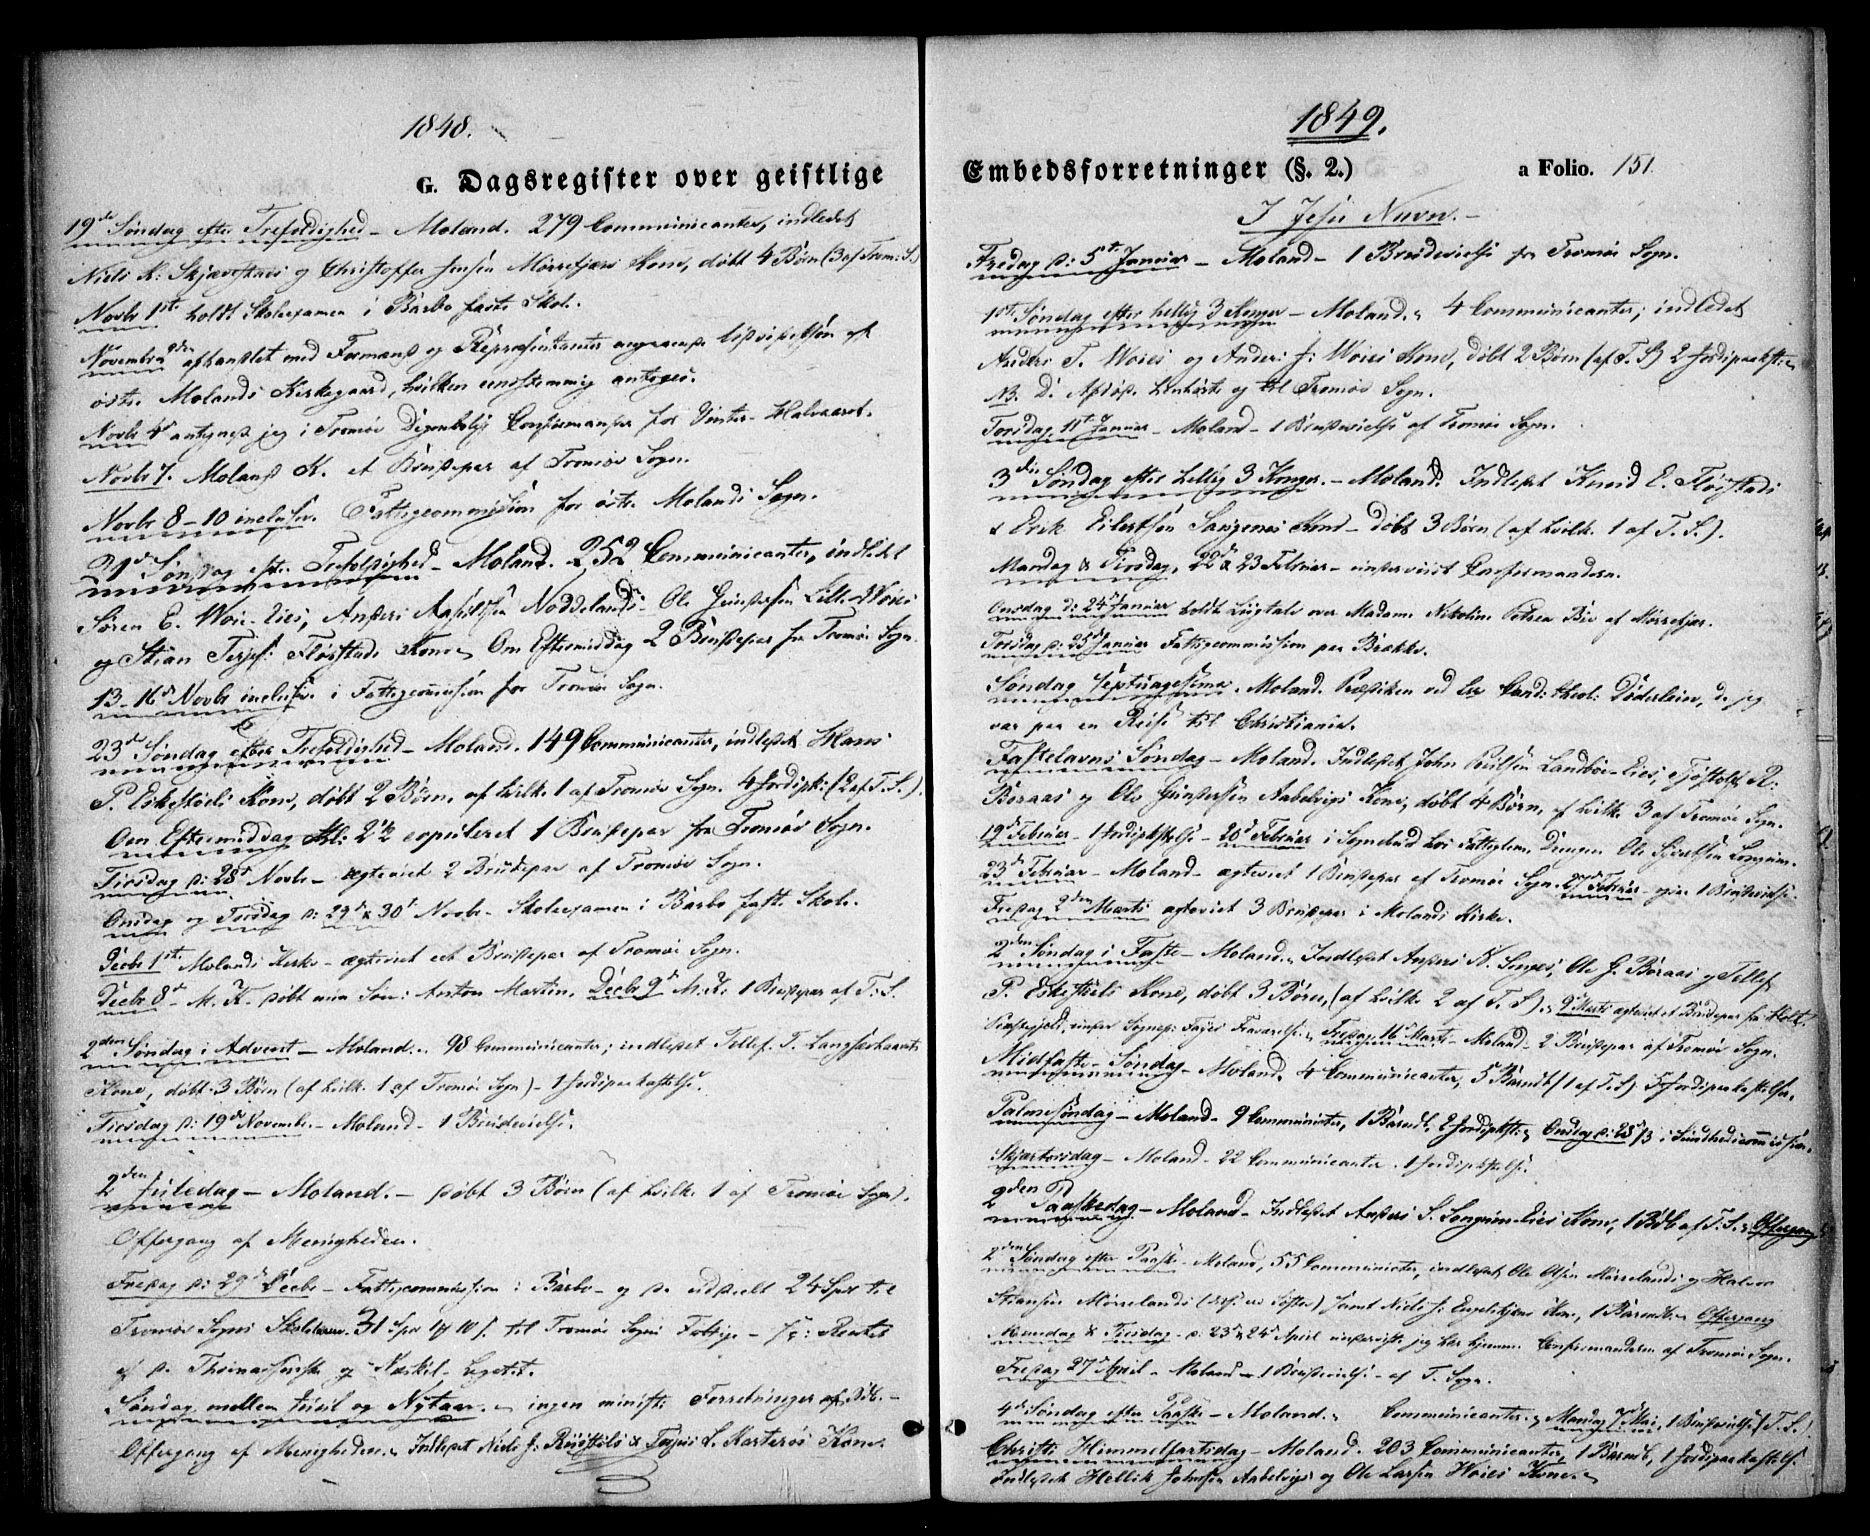 1848.
G. Dagsregister over geistlige
19de Søndag efter Trefoldighed – Moland. 279 Communicanter, indledet
Niels K. Skjævestads og Christoffer Jensen Mørrefjærs Kone, døbt 4 Børn (3 af Trom: S.)
Novbr 1ste holdt Skoleexamen i Barbo faste Skole.
Novembr afhandlet med Formænd og Repræsentanter angaaende Udvidelsen af
østr. Molands Kirkegaard, hvilken eenstemmig antoges.
Novbr 4de antegnede jeg i Tromø Confirmander for Vinter-Halvaaret.
Novbr 7. Moland K. et Brudepar af Tromø Sogn.
Novbr 8–10 inclusive. Fattigcommission for østr. Molands Sogn.
21de Søndag eft. Trefoldighed – Moland. 252 Communicanter, indledet
Søren E. Woie-Eies, Anders Noddelands, Ole Gundersen Lille-Woies
og Stian Terjes: Fløistads Kone. Om Eftermiddag 2 Brudepar fra Tromø Sogn.
13–16de Novbr inclusive i Fattigcommission for Tromø Sogn.
23de Søndag efter Trefoldighed – Moland. 149 Communicanter, indledet Hans
P. Eskesdels Kone, døbt 2 Børn, af hvilke 1 af Tromø Sogn. 4 Jordpk: (2 af T. S.).
Om Eftermiddag Kl: 2½ copuleret 1 Brudepar fra Tromø Sogn.
Tirsdag d: 28de Novbr – ægteviet 2 Brudepar af Tromø Sogn.
Onsdag og Torsdag d: 29de & 30te Novbr – Skoleexamen i Barbo faste Skole.
Decbr 1ste Molands Kirke – ægteviet eet Brudepar af Tromø Sogn.
Decbr 8de – M. K. døbt min Søn: Anton Martin. Decbr 9de M. K. 1 Brudepar af T: S.
2den Søndag i Advent – Moland. 98 Communicanter; indledet Tellef T. Langsæ
Kone, døbt 3 Børn (af hvilke 1 af Tromø Sogn) – 1 Jordpaakastelse.
Tirsdag d: 19de Novembr. – Moland – 1 Brudevielse.
2den Juledag – Moland. – døbt 3 Børn (af hvilke 1 af Tromø Sogn).
Offergang af Menigheden.
Fredag d: 29de Decbr – Fattigcommission i Barbo – og uddeelt 24 Spd til
Tromø Sogns Skolevæsen. 31 Spd til Tromø Sogns Fattige – Renter
af og Næskil-Legatet.
Søndag mellem Juul og Nytaar. – ingen minist. Forretninger
Offergang af Menigheden. Indledet Niels J. & Terjes Kone.
1849.
Embedsforretninger (§. 2.)
a Folio. 151.
I Jesu Navn. –
Fredag d: 5te Januar – Moland – 1 Brudevielse fra Tromø Sogn.
1ste Søndag efter hellig 3 Konger – Moland. 4 Communicanter; indledet
Anders T. Woies og Anders J. Woies Kone, døbt 2 Børn (af T. S) 2 Jordpaakast:
NB. til Tromø Sogn.
Torsdag 11te Januar – Moland – 1 Brudevielse af Tromø Sogn.
3die Søndag efter hellig 3 Konger. – Moland. Indledet Knud E. Fløistads
& Erik Eilertsen Kone – døbt 3 Børn (af hvilke 1 af T. S.).
Mandag & Tirsdag, 22de & 23 Februar – underviist Confirmanderne.
Onsdag d: 24de Januar holdt Liigtale over Madame Nikoline Petrea af Mørrefjær.
Torsdag d: 25de Januar Fattigcommission paa Brække.
Søndag Septuagesima. Moland. Prædiken ved Cand: theol: Døderlein, da jeg
var paa en Reise til Christiania.
Fastelavns Søndag – Moland. Indledet John Landbøe-Eies, Tjøstolf R.
Boraas og Ole Gundersen Aabelvigs Kone, døbt 4 Børn, af hvilke 3 af Tromø Sogn.
19de Februar – 1 Jordpkstelse – 20de Februar i Sognebud hos Ole
23de Februar – Moland – ægteviet 1 Brudepar af Tromø Sogn. 27de Februar 1 Brudevielse.
Fredag 2den Marts ægteviet 3 Brudepar i Molands Kirke.
2den Søndag i Faste – Moland. Indledet Anders N. Ole G. Boraas og Tellef
P. Eskesdels Kone, døbt 3 Børn, (af hvilke 2 af T. S). 9de Marts ægteviet et Brudepar fra Holt
Fredag 16de Marts – Moland – 2 Brudepar af Tromø Sogn.
Midfaste-Søndag – Moland. 4 Communicanter, 5 Barndb (1 af T. S) Jordpaakastelse.
Palmesøndag – Moland. 9 Communicanter, 1 Barndb, 2 Jordpkst: Onsdag d: 28/3 i Sundhedscommission.
Skjærtorsdag – Moland. 22 Communicanter. 1 Jordpkstelse.
2den Paaskedag – Moland – Indledet Anders S. Longum-Eies Kone, 1 Bdb af T. S. Offergang
2den Søndag efter Paaske – Moland, 55 Communicanter, indledet Ole Olsen Mørrelands og Halvor
Stiansen Mørrelands samt Niels J. Kone, 1 Barndb. Offergang
Mandag & Tirsdag – d: 23de & 24de April underviste jeg Confirmanderne af Tromø Sogn.
Fredag 27de April – Moland – 1 Brudevielse – af T. Sogn.
4de Søndag efter Paaske – Moland. Communicanter. Mandag 7de Mai, 1 Brudevielse (T. S.)
Christi Himmelfartsdag – Moland. 203 Communicanter, 1 Barndb, 1 Jordpaakastelse
Indledet Hellik Johnsen Aabelvigs og Ole Larsen Woies Kone.